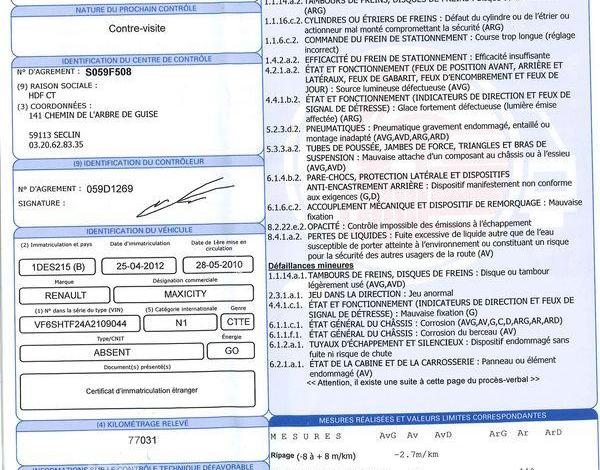 NATURE DU PROCHAIN CONTRÔLE
Contre-visite
IDENTIFICATION DU CENTRE DE CONTRÔLE
N° D'AGREMENT : S059F508
(9) RAISON SOCIALE :
HDF CT
(3) COORDONNÉES :
141 CHEMIN DE L'ARBRE DE GUISE
59113 SECLIN
03.20.62.83.35
(9) IDENTIFICATION DU CONTRÔLEUR
N° D'AGREMENT : 059D1269
SIGNATURE :
IDENTIFICATION DU VÉHICULE
(2) Immatriculation et pays Date d'immatriculation Date de 1ère mise en circulation
1DES215 (B) 25-04-2012 28-05-2010
Marque Désignation commerciale
RENAULT MAXICITY
(1) N° dans la série du type (VIN) (5) Catégorie internationale Genre
VF6SHTF24A2109044 N1 CTTE
Type/CNIT Énergie
ABSENT GO
Document(s) présenté(s)
Certificat d'immatriculation étranger
(4) KILOMÉTRAGE RELEVÉ
77031
INFORMATIONS SUR LE CONTRÔLE TECHNIQUE DÉFAVORABLE
(ARG)
1.1.16.c.2. CYLINDRES OU ÉTRIERS DE FREINS : Défaut du cylindre ou de l'étrier ou
actionneur mal monté compromettant la sécurité (ARG)
1.1.6.c.2. COMMANDE DU FREIN DE STATIONNEMENT : Course trop longue (réglage
incorrect)
1.4.2.a.2. EFFICACITÉ DU FREIN DE STATIONNEMENT : Efficacité insuffisante
4.2.1.a.2. ÉTAT ET FONCTIONNEMENT (FEUX DE POSITION AVANT, ARRIÈRE ET
LATÉRAUX, FEUX DE GABARIT, FEUX D'ENCOMBREMENT ET FEUX DE
JOUR) : Source lumineuse défectueuse (AVG)
4.4.1.b.2. ÉTAT ET FONCTIONNEMENT (INDICATEURS DE DIRECTION ET FEUX DE
SIGNAL DE DÉTRESSE) : Glace fortement défectueuse (lumière émise
affectée) (ARG)
5.2.3.d.2. PNEUMATIQUES : Pneumatique gravement endommagé, entaillé ou
montage inadapté (AVG,AVD,ARG,ARD)
5.3.3.a.2. TUBES DE POUSSÉE, JAMBES DE FORCE, TRIANGLES ET BRAS DE
SUSPENSION : Mauvaise attache d'un composant au châssis ou à l'essieu
(AVG,AVD)
6.1.4.b.2. PARE-CHOCS, PROTECTION LATÉRALE ET DISPOSITIFS
ANTI-ENCASTREMENT ARRIÈRE : Dispositif manifestement non conforme
aux exigences (G,D)
6.1.6.c.2. ACCOUPLEMENT MÉCANIQUE ET DISPOSITIF DE REMORQUAGE : Mauvaise
fixation
8.2.22.e.2. OPACITÉ : Contrôle impossible des émissions à l'échappement
8.4.1.a.2. PERTES DE LIQUIDES : Fuite excessive de liquide autre que de l'eau
susceptible de porter atteinte à l'environnement ou constituant un risque
pour la sécurité des autres usagers de la route (AV)
Défaillances mineures
1.1.14.a.1. TAMBOURS DE FREINS, DISQUES DE FREINS : Disque ou tambour
légèrement usé (AVG,AVD)
2.3.1.a.1. JEU DANS LA DIRECTION : Jeu anormal
4.4.1.c.1. ÉTAT ET FONCTIONNEMENT (INDICATEURS DE DIRECTION ET FEUX DE
SIGNAL DE DÉTRESSE) : Mauvaise fixation (G)
6.1.1.c.1. ÉTAT GÉNÉRAL DU CHÂSSIS : Corrosion (AVG,AV,G,C,D,ARG,AR,ARD)
6.1.1.f.1. ÉTAT GÉNÉRAL DU CHÂSSIS : Corrosion du berceau (AV)
6.1.2.a.1. TUYAUX D'ÉCHAPPEMENT ET SILENCIEUX : Dispositif endommagé sans
fuite ni risque de chute
6.2.1.a.1. ÉTAT DE LA CABINE ET DE LA CARROSSERIE : Panneau ou élément
endommagé (AV)
<< Attention, il existe une suite à cette page du procès-verbal >>
MESURES RÉALISÉES ET VALEURS LIMITES CORRESPONDANTES
MESURES AvG Av AvD ArG Ar ArD
Ripage (-8 à + 8 m/km) -2.7m/km